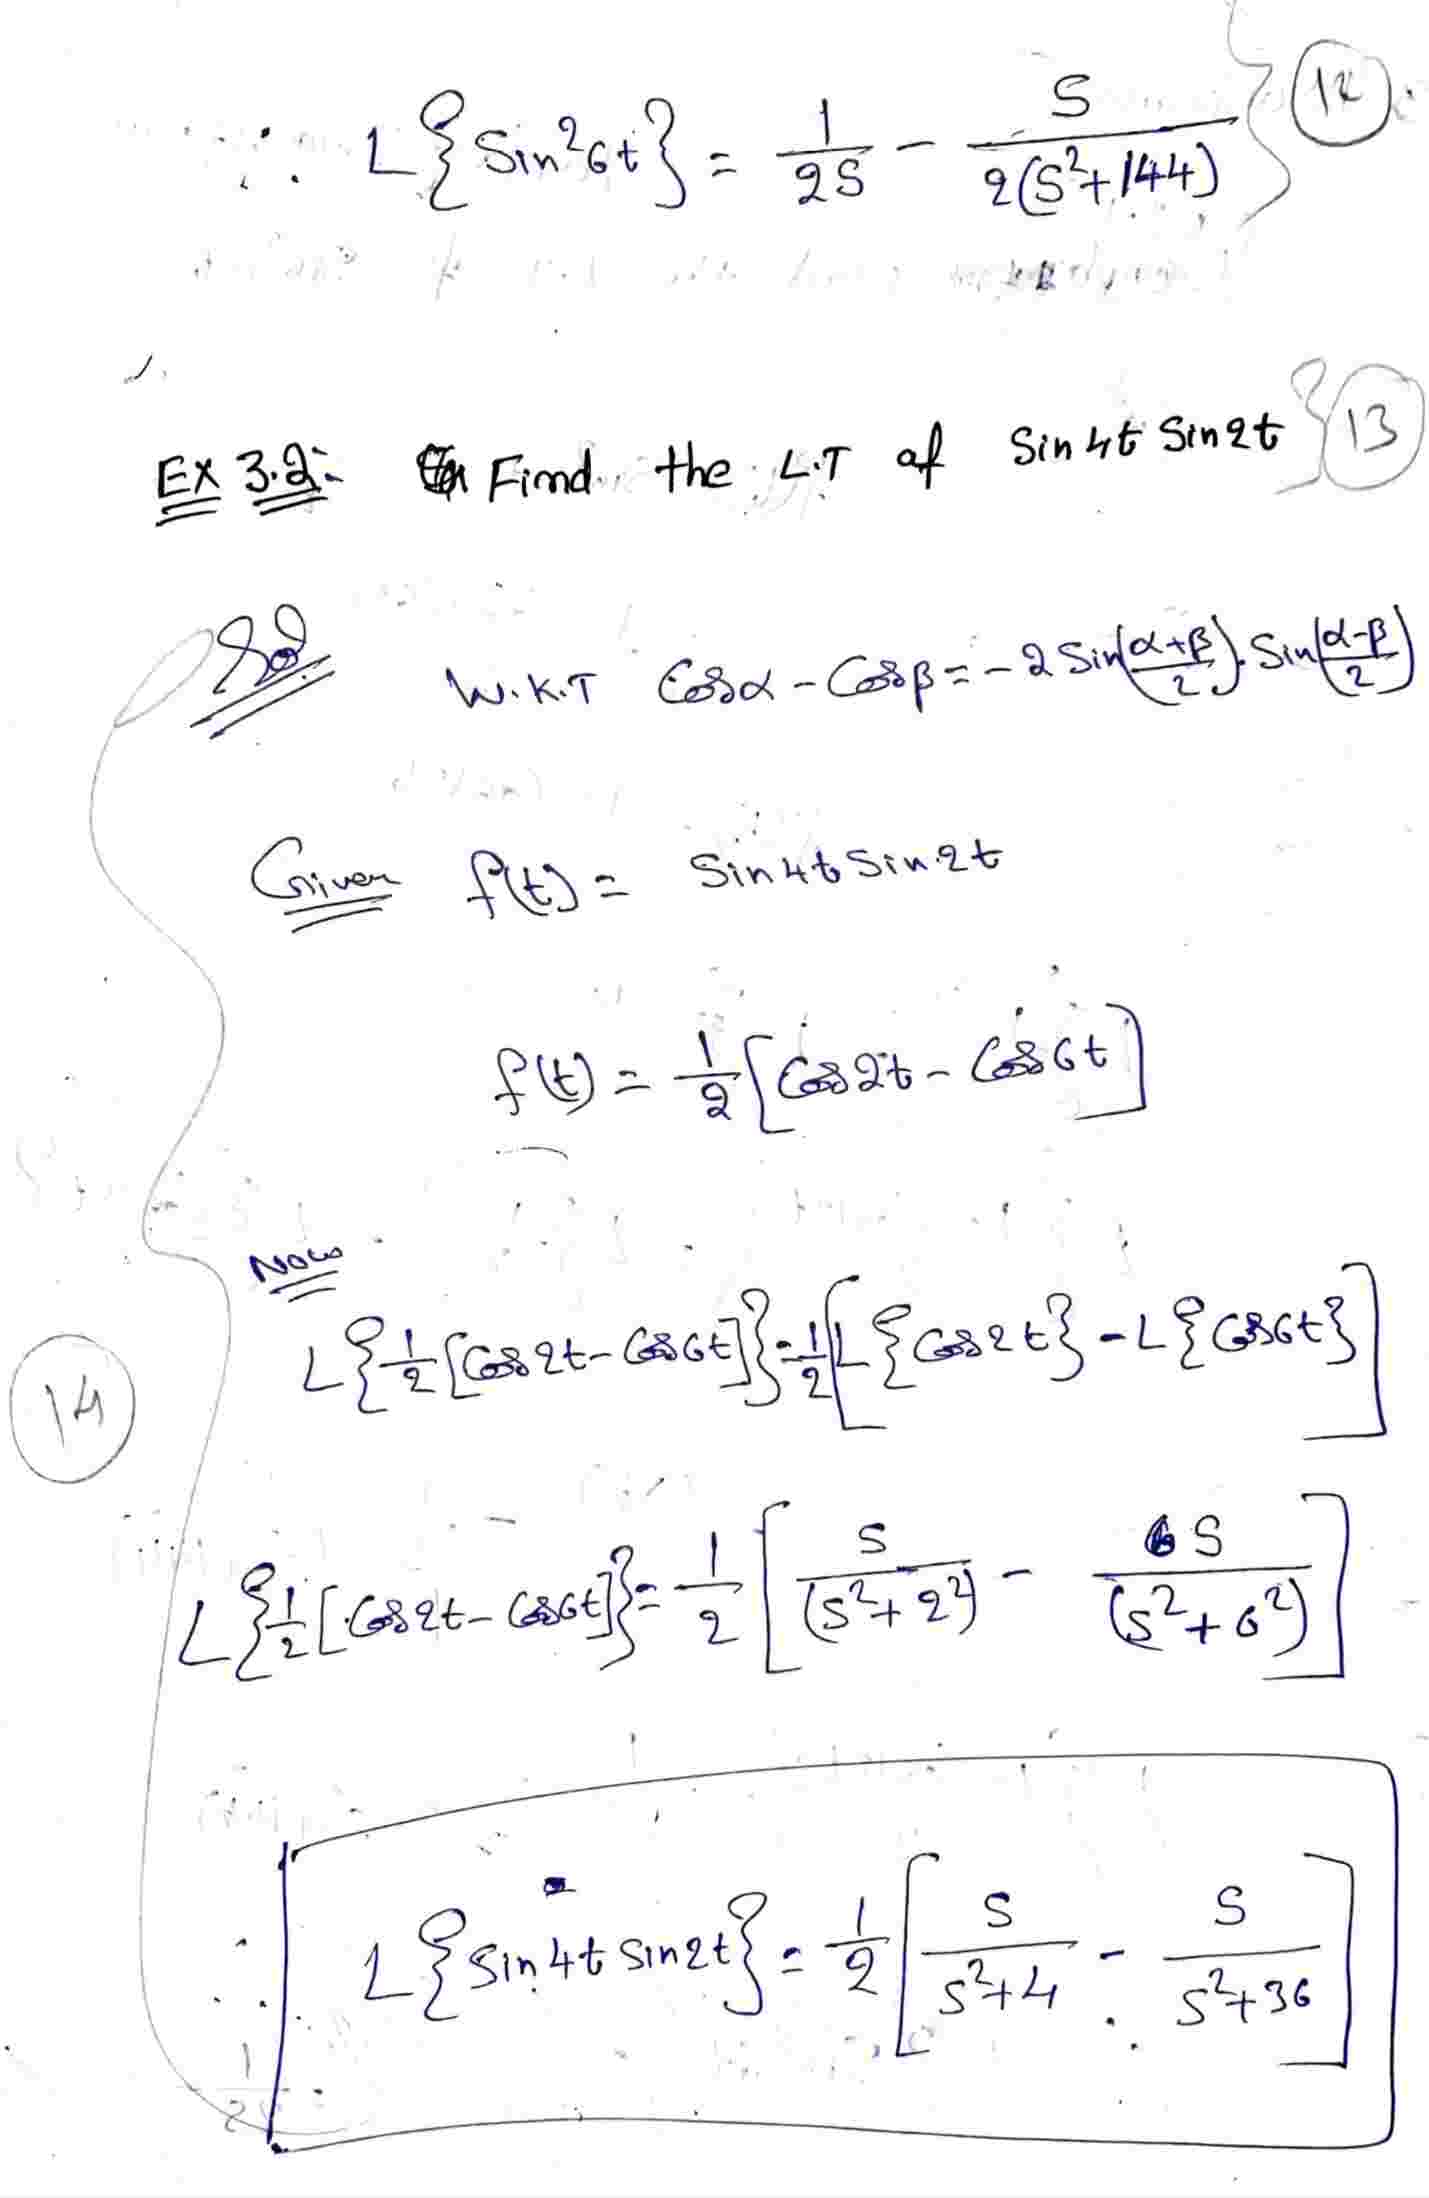 ∴ L{Sin²6t} = 1/2S - S/2(S²+144) } 12
EX 3.2:- Find the L.T of Sin4t Sin2t } 13
Sol W.K.T Cosα - Cosβ = -2 Sin(α+β/2). Sin(α-β/2)
Given f(t) = Sin4t Sin2t
f(t) = 1/2 [Cos2t - Cos6t]
Now
L{1/2[Cos2t - Cos6t]} = 1/2[L{Cos2t} - L{Cos6t}]
14
L{1/2[Cos2t - Cos6t]} = 1/2 [S/(S²+2²) - S/(S²+6²)]
∴ L{Sin4t Sin2t} = 1/2 [S/S²+4 - S/S²+36]